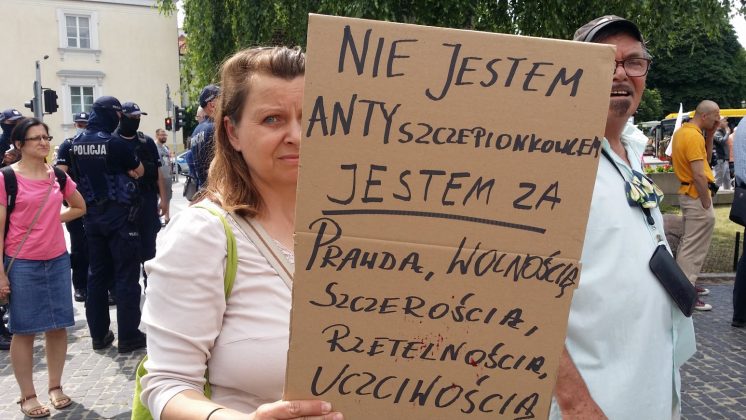 NIE JESTEM
ANTYSZCZEPIONKOWCEM
JESTEM ZA
PRAWDĄ, WOLNOŚCIĄ,
SZCZEROŚCIĄ,
RZETELNOŚCIĄ,
UCZCIWOŚCIĄ
POLICJA